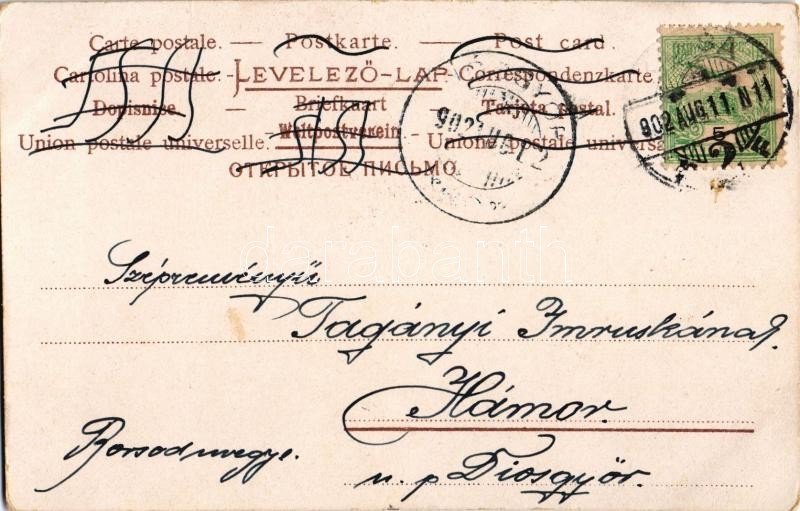 Carte postale. — Postkarte. — Post card.
Cartolina postale. — LEVELEZŐ-LAP — Correspondenzkarte.
Dopisnise. Briefkaart Tarjeta postal.
Union postale universelle. Weltpostverein. Unione postale universa
ОТКРЫТОЕ ПИСЬМО.
902 AUG. 11. N 11
5
Szépreményű
Tagányi Imruskának
Hámor.
Borsodmegye.
u. p Diosgyőr.
darabanth